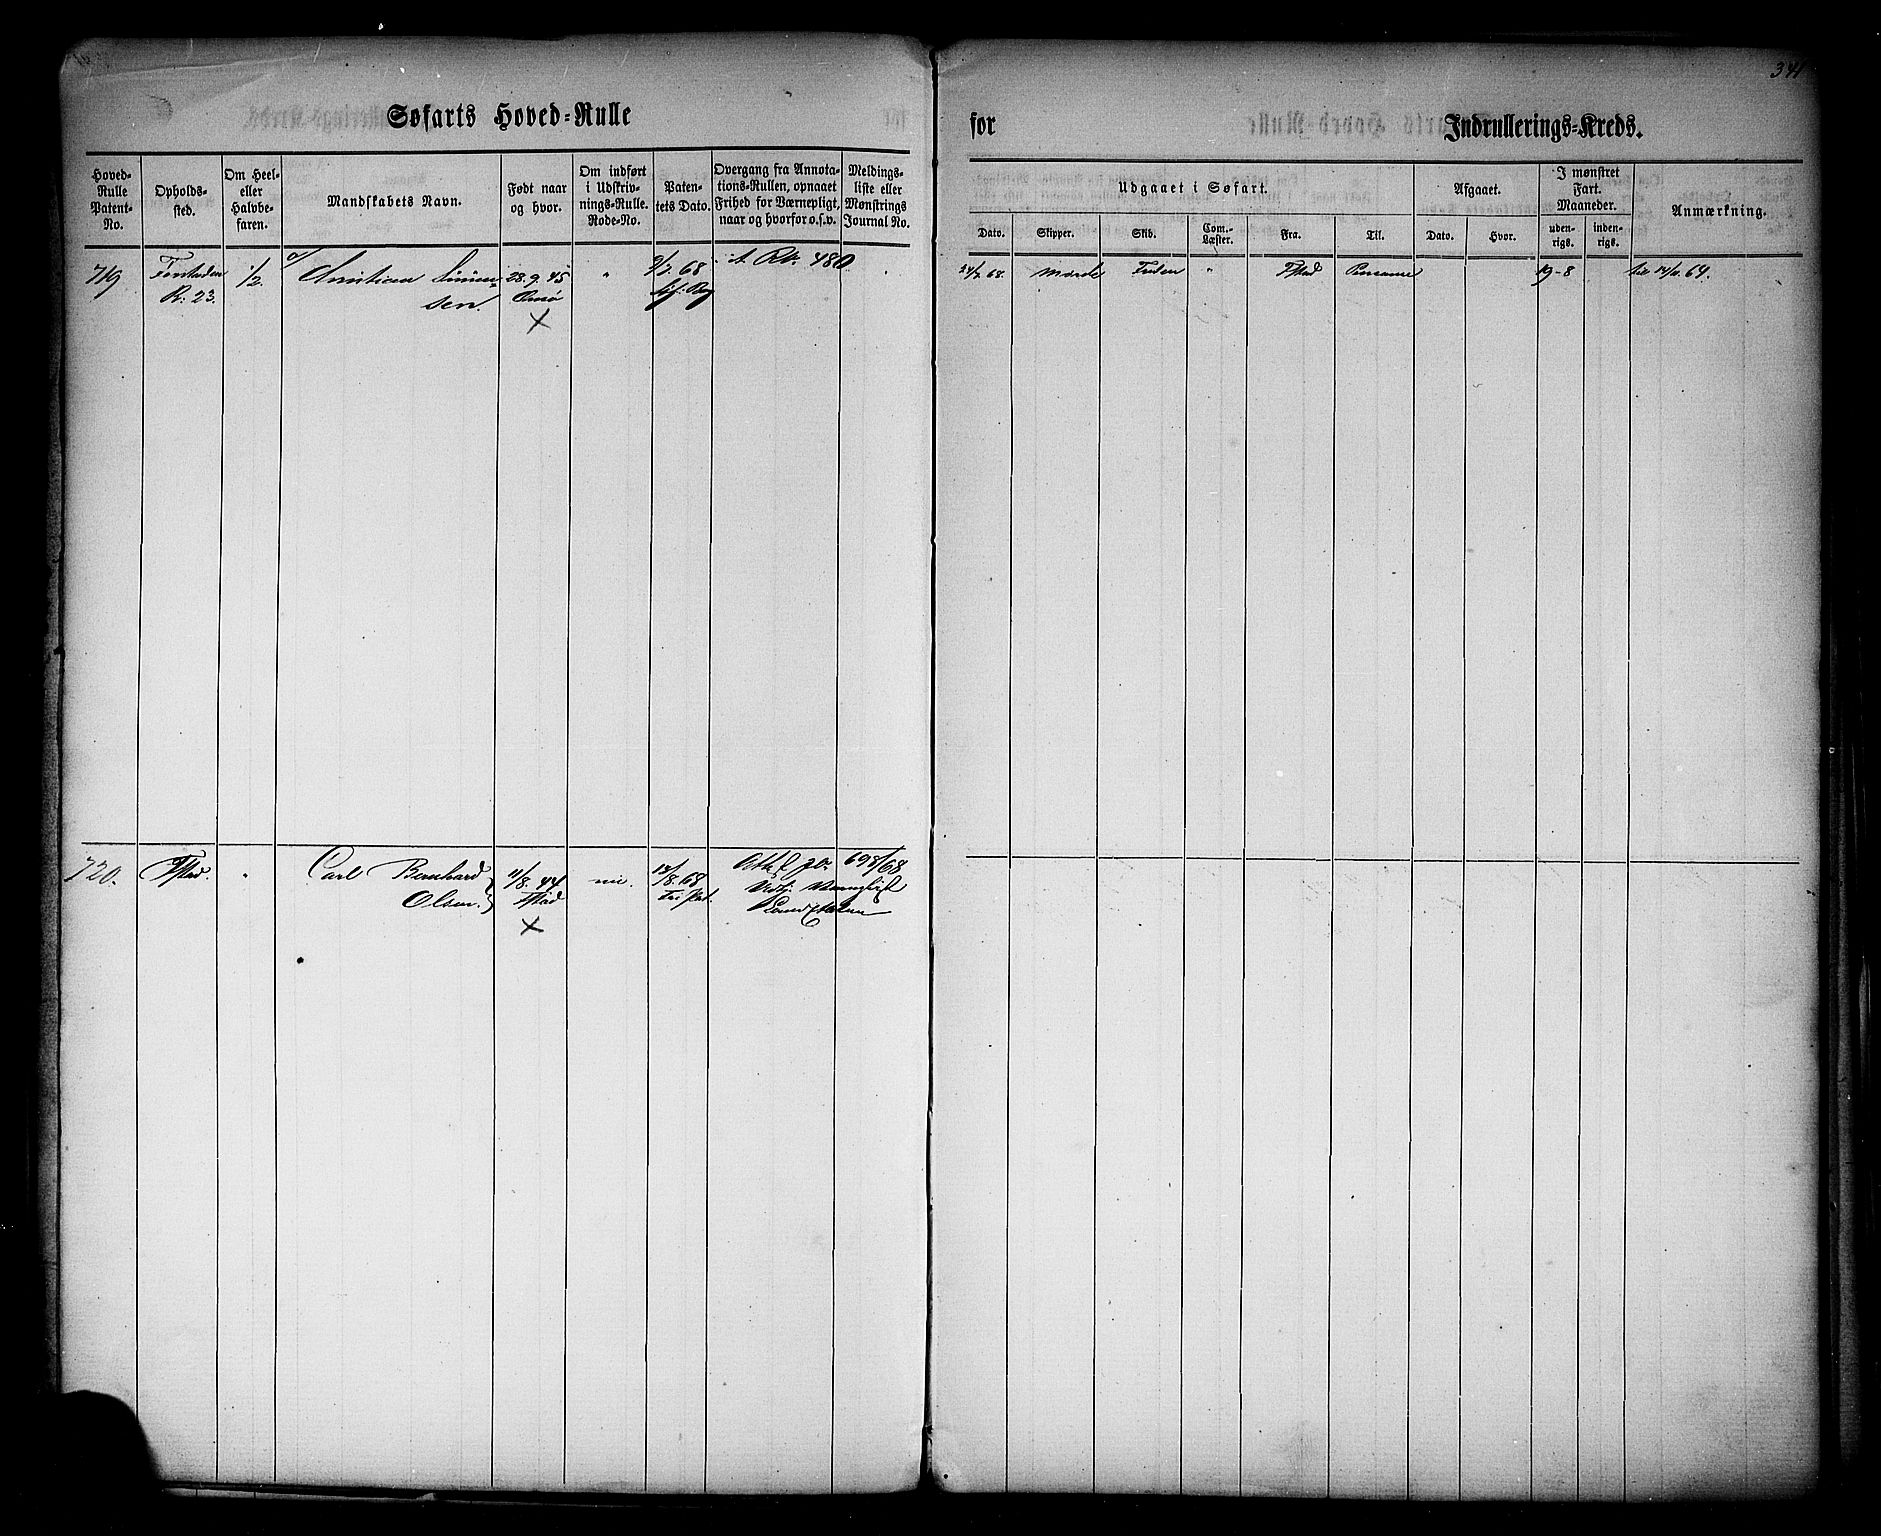 341
Søfarts Hoved-Rulle
for
Indrullerings-Kreds.
Hoved-Rulle Patent-No.
Opholds-sted.
Om Heel- eller Halvbe-faren.
Mandskabets Navn.
Født naar og hvor.
Om indført i Udskriv-nings-Rulle. Rode-No.
Paten-tets Dato.
Overgang fra Annota-tions-Rullen, opnaaet Frihed for Værnepligt, naar og hvorfor o.s.v.
Meldings-liste eller Mønstrings Journal No.
Udgaaet i Søfart.
Dato.
Skipper.
Skib.
Com.-Læster.
Fra.
Til.
Afgaaet.
Dato.
Hvor.
I mønstret Fart. Maaneder.
uden-rigs.
inden-rigs.
Anmærkning.
719
R: 23.
1/2.
Christian
sen.
28.9.45
Onsø
×
"
9/7.68
A. R. 480
24/7 68.
"
Fstad
19-8
14/11.69.
720.
Fstad.
"
Carl Bernhard
Olsen.
11/8.44
Fstad
×
14/8.68
Fri Pat.
698/68